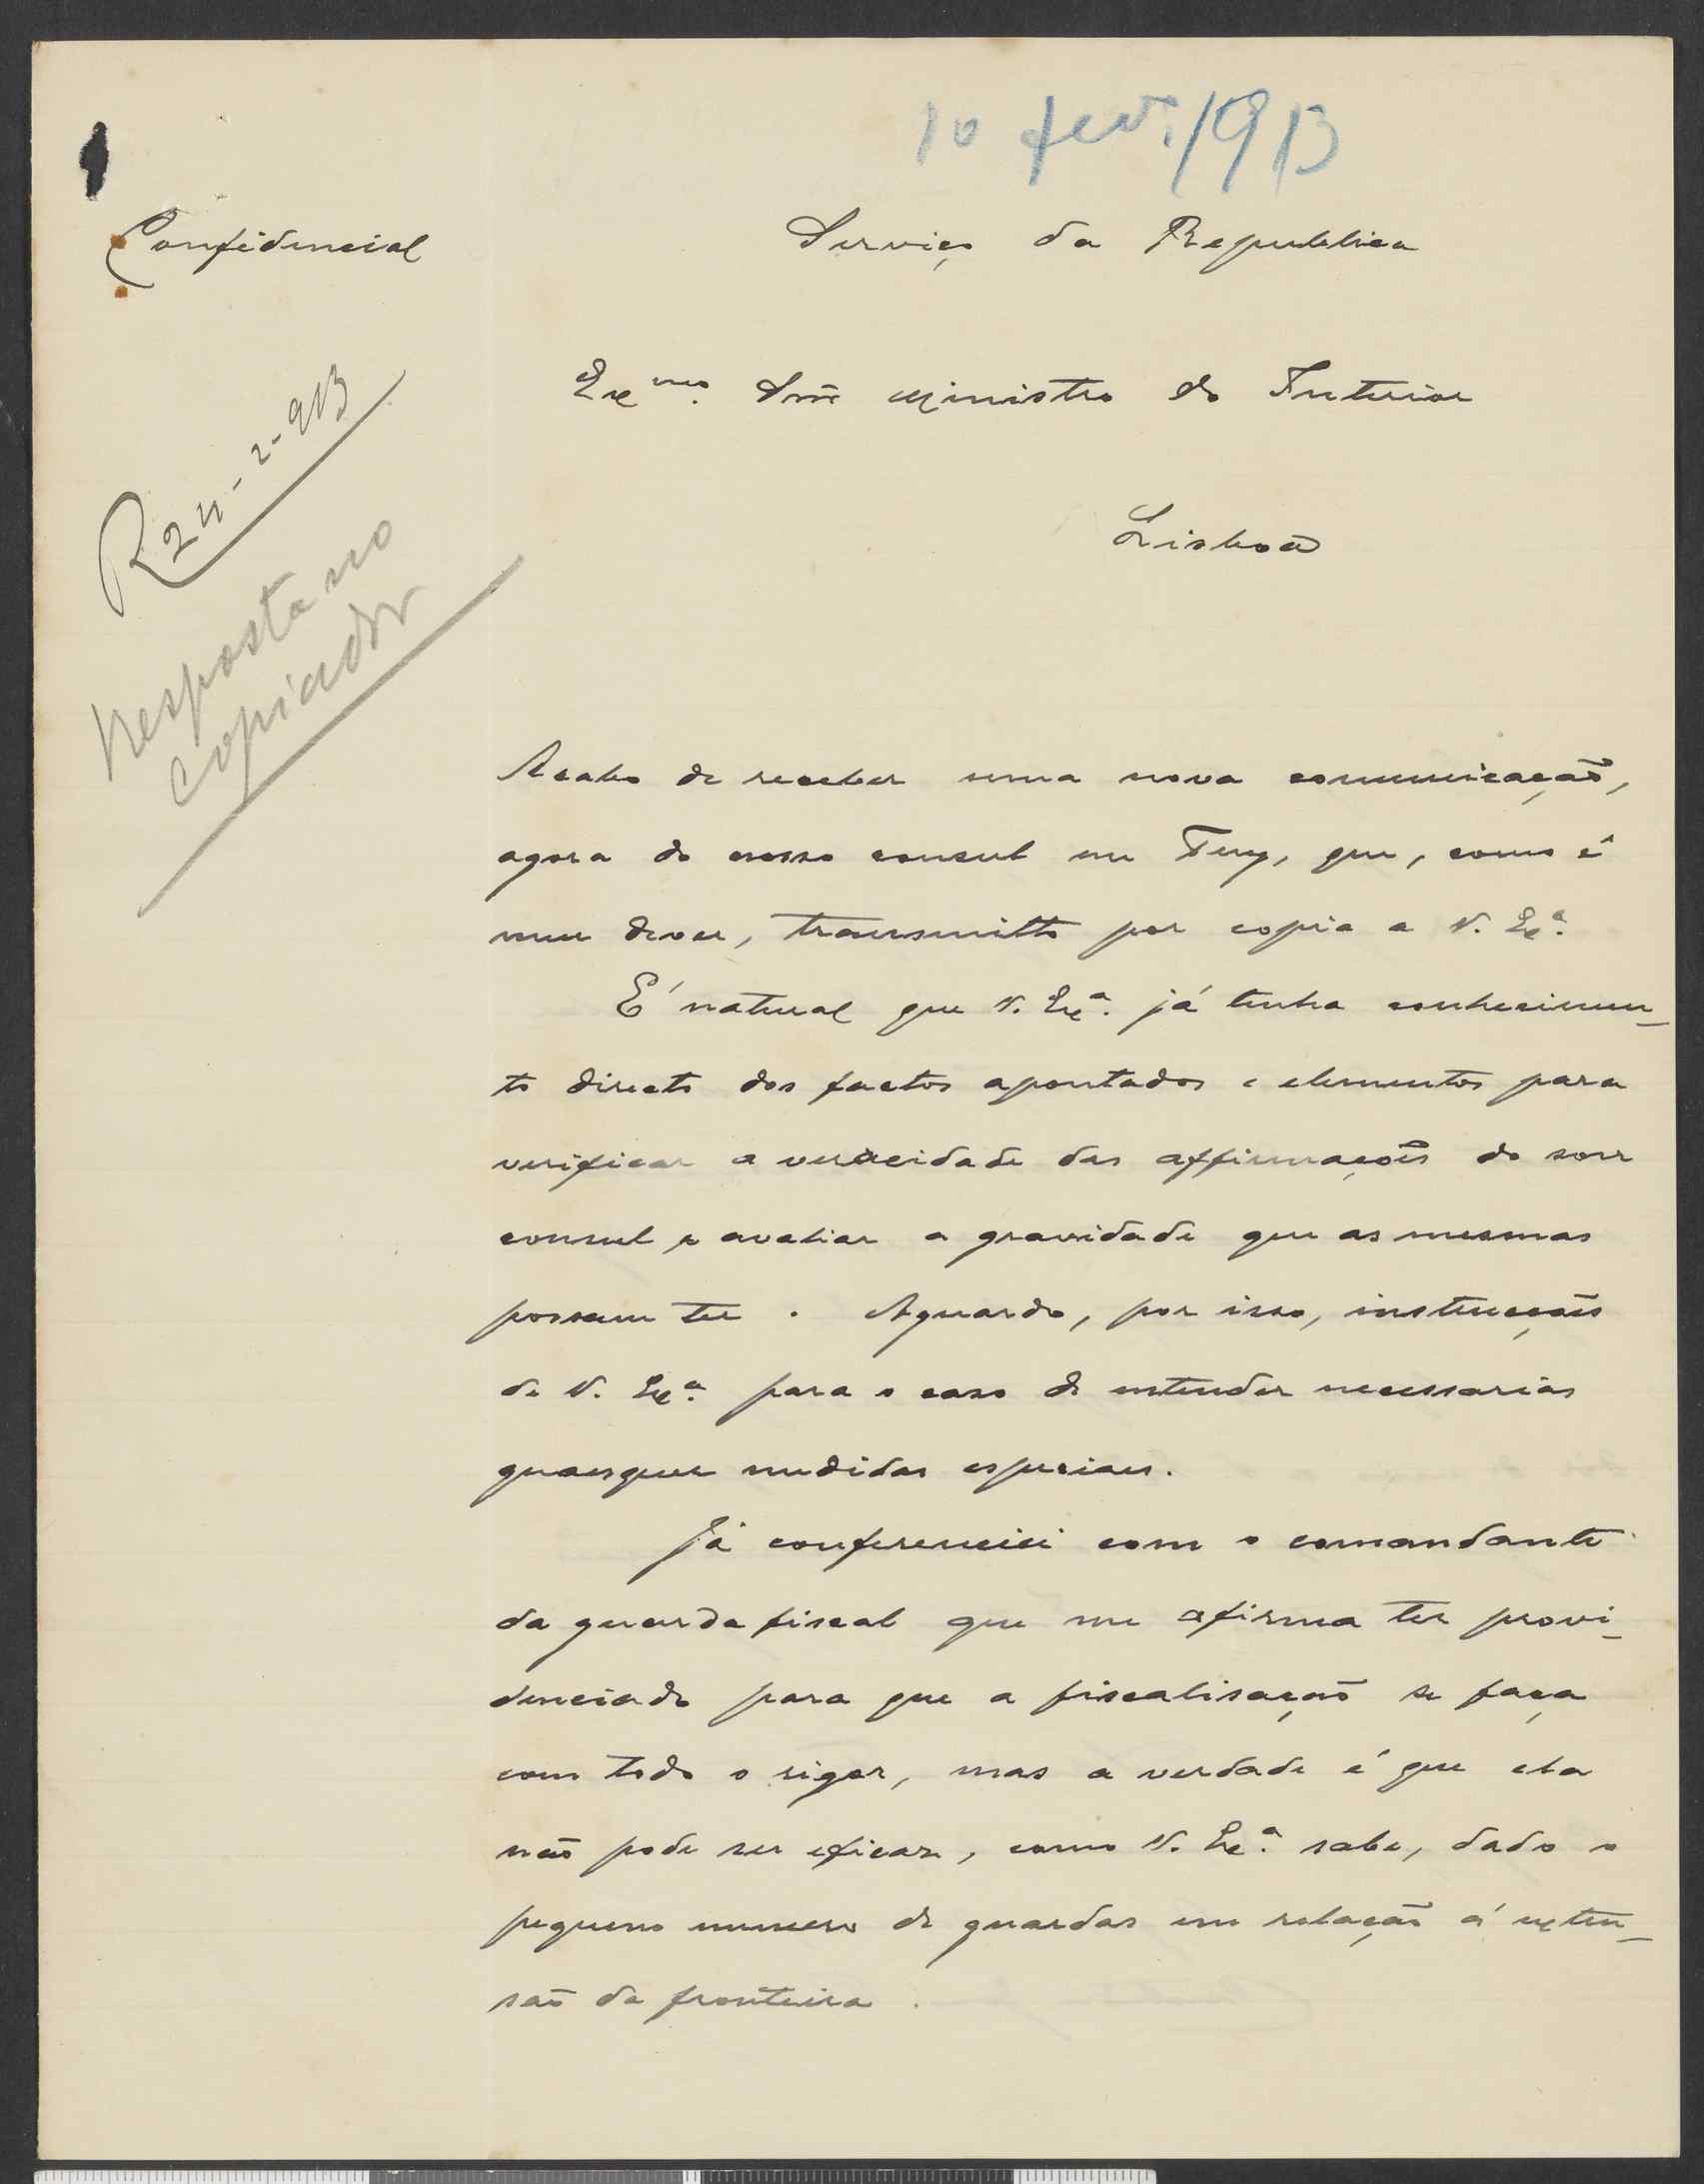 10 fev. 1913
Confidencial
Serviço da Republica
Exmo. Snr. Ministro do Interior
Lisboa
R 24-2-913
Resposta no
copiador
Acabo de receber uma nova comunicação,
agora do nosso consul em Tuy, que, como é
meu dever, transmitto por copia a V. Exª.
É natural que V. Exª. já tenha conhecimen-
to directo dos factos apontados e elementos para
verificar a veracidade das affirmações do
consul e avaliar a gravidade que as mesmas
possam ter. Aguardo, por isso, instrucções
de V. Exª. para o caso de entender necessarias
quaesquer medidas especiaes.
Já conferenciei com o comandante
da guarda fiscal que me afirma ter provi-
denciado para que a fiscalisação se faça
com todo o rigor, mas a verdade é que ela
não pode ser eficaz, como V. Exª. sabe, dado o
pequeno numero de guardas em relação á exten-
são da fronteira.